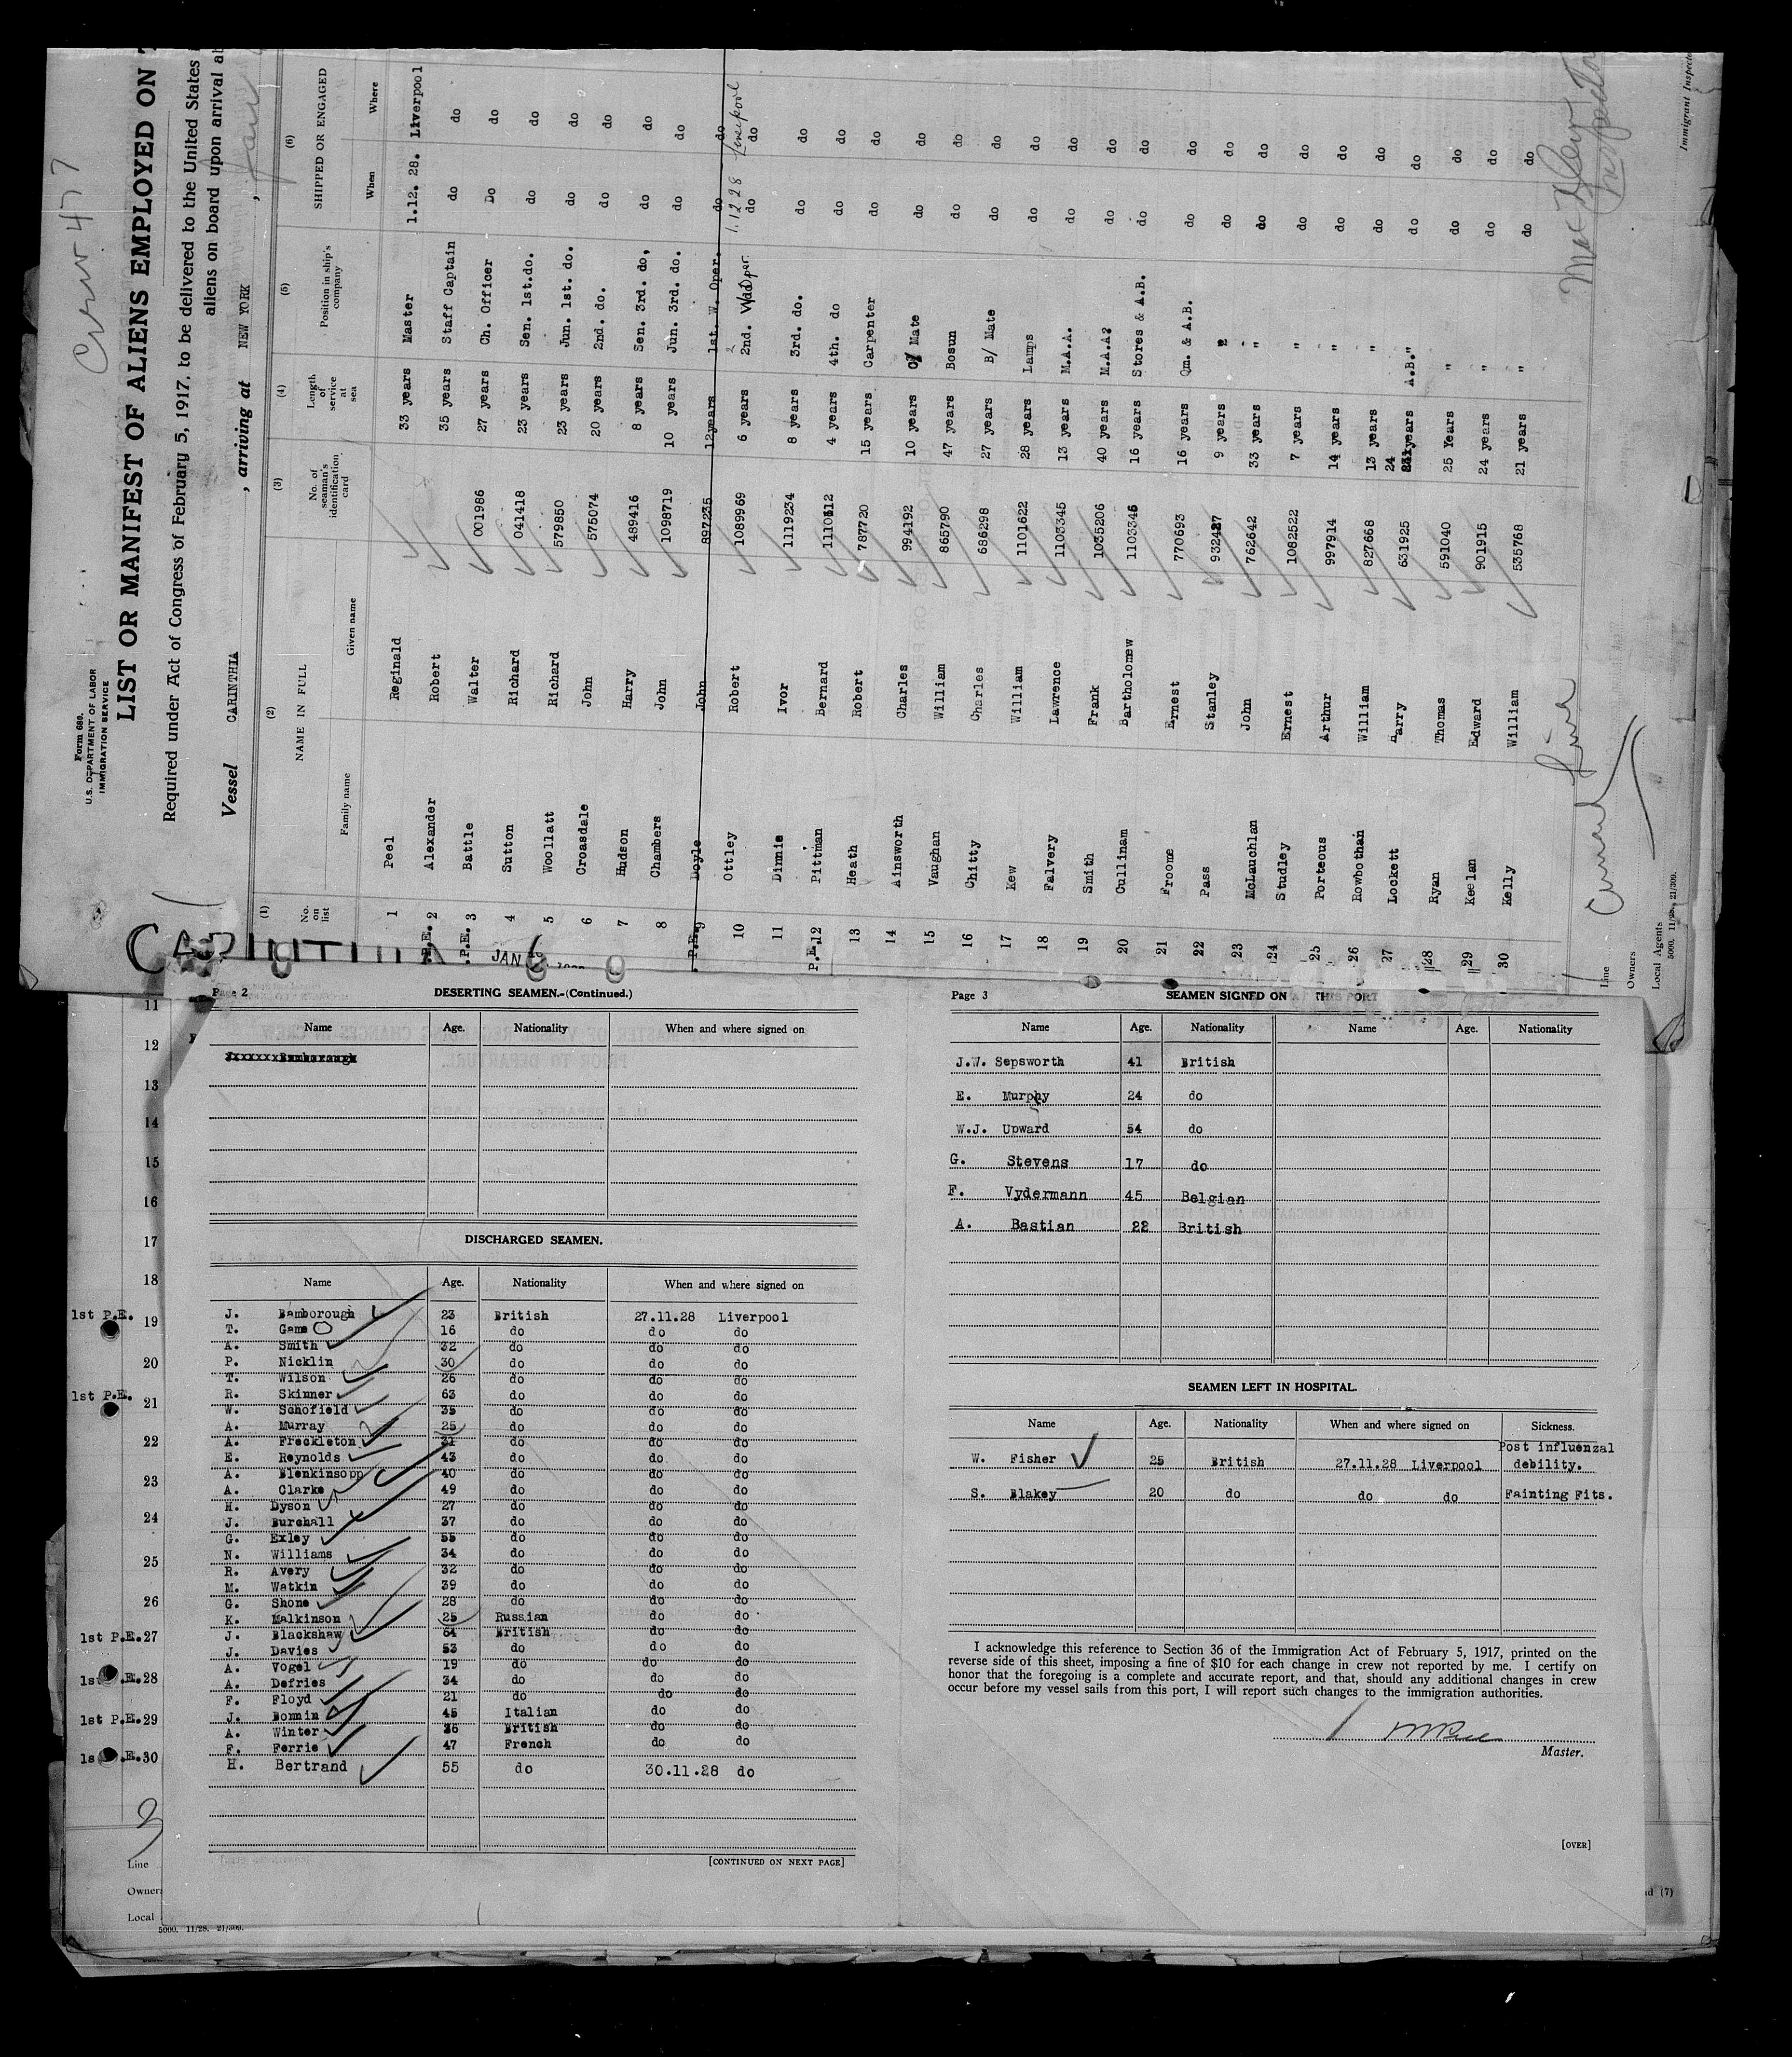 Crew 477
Form 680.
U.S. DEPARTMENT OF LABOR
IMMIGRATION SERVICE
LIST OR MANIFEST OF ALIENS EMPLOYED ON
Required under Act of Congress of February 5, 1917, to be delivered to the United States
aliens on board upon arrival at
Vessel CARINTHIA , arriving at NEW YORK ,
(1) (2) (3) (4) (5) (6)
No. on list NAME IN FULL No. of seaman's identification card Length of service at sea Position in ship's company SHIPPED OR ENGAGED
Family name Given name When Where
1 Peel Reginald 33 years Master 1.12. 28. Liverpool
P.E. 2 Alexander Robert 35 years Staff Captain do do
P.E. 3 Battle Walter 001986 27 years Ch. Officer Do do
4 Sutton Richard 041418 23 years Sen. 1st.do. do do
5 Woollatt Richard 579850 23 years Jun. 1st. do. do do
6 Croasdale John 575074 20 years 2nd. do. do do
7 Hudson Harry 489416 8 years Sen. 3rd. do, do do
8 Chambers John 1098719 10 years Jun. 3rd. do. do do
P.E. 9 Doyle John 897235 12years 1st. W. Oper. do do
10 Ottley Robert 1089969 6 years 2nd. Oper. do do
1.12 28 Liverpool
11 Dinnie Ivor 1119234 8 years 3rd. do. do do
P.E.12 Pittman Bernard 1110612 4 years 4th. do do do
13 Heath Robert 787720 15 years Carpenter do do
14 Ainsworth Charles 994192 10 years Mate do do
15 Vaughan William 865790 47 years Bosun do do
16 Chitty Charles 686298 27 years B/ Mate do do
17 Kew William 1101622 28 years Lamps do do
18 Falvery Lawrence 1103345 13 years M.A.A. do do
19 Smith Frank 1035206 40 years M.A.A? do do
20 Cullinam Bartholomew 1103346 16 years Stores & A.B. do do
21 Froome Ernest 770693 16 years Qm. & A.B. do do
22 Pass Stanley 932427 9 years do do
23 McLauchlan John 762642 33 years " do do
24 Studley Ernest 1082522 7 years " do do
25 Porteous Arthur 997914 14 years " do do
26 Rowbothan William 827668 13 years " do do
27 Lockett Harry 631925 24 years A.B." do do
28 Ryan Thomas 591040 25 Years " do do
29 Keelan Edward 901915 24 years " do do
30 Kelly William 535768 21 years " do do
Line Cunard Line
Owners
Local Agents
5000. 11/28. 21/309.
Immigrant Inspector
CARINTHIA
JAN
11
12
13
14
15
16
17
18
1st P.E. 19
20
1st P.E. 21
22
23
24
25
26
1st P.E.27
1st P.E.28
1st P.E.29
1st P.E.30
Line
Owners
Local
5000. 11/28. 21/309.
Page 2 DESERTING SEAMEN.-(Continued.)
Name Age. Nationality When and where signed on
DISCHARGED SEAMEN.
Name Age. Nationality When and where signed on
J. Bamborough 23 British 27.11.28 Liverpool
T. Game 16 do do do
A. Smith 32 do do do
P. Nicklin 30 do do do
T. Wilson 26 do do do
R. Skinner 63 do do do
W. Schofield 35 do do do
A. Murray 25 do do do
A. Freckleton 31 do do do
E. Reynolds 43 do do do
A. Blenkinsopp 40 do do do
A. Clarke 49 do do do
H. Dyson 27 do do do
J. Burchall 37 do do do
G. Exley 55 do do do
N. Williams 34 do do do
R. Avery 32 do do do
M. Watkin 39 do do do
G. Shone 28 do do do
K. Malkinson 25 Russian do do
J. Blackshaw 64 British do do
J. Davies 53 do do do
A. Vogel 19 do do do
A. Defries 34 do do do
F. Floyd 21 do do do
J. Bonnin 45 Italian do do
A. Winter 36 British do do
F. Ferrie 47 French do do
H. Bertrand 55 do 30.11.28 do
[CONTINUED ON NEXT PAGE]
Page 3 SEAMEN SIGNED ON AT THIS PORT
Name Age. Nationality Name Age. Nationality
J.W. Sepsworth 41 British
E. Murphy 24 do
W.J. Upward 54 do
G. Stevens 17 do
F. Vydermann 45 Belgian
A. Bastian 22 British
SEAMEN LEFT IN HOSPITAL.
Name Age. Nationality When and where signed on Sickness.
W. Fisher 25 British 27.11.28 Liverpool Post influenzal debility.
S. Blakey 20 do do do Fainting Fits.
I acknowledge this reference to Section 36 of the Immigration Act of February 5, 1917, printed on the
reverse side of this sheet, imposing a fine of $10 for each change in crew not reported by me. I certify on
honor that the foregoing is a complete and accurate report, and that, should any additional changes in crew
occur before my vessel sails from this port, I will report such changes to the immigration authorities.
Master.
[OVER]
(7)